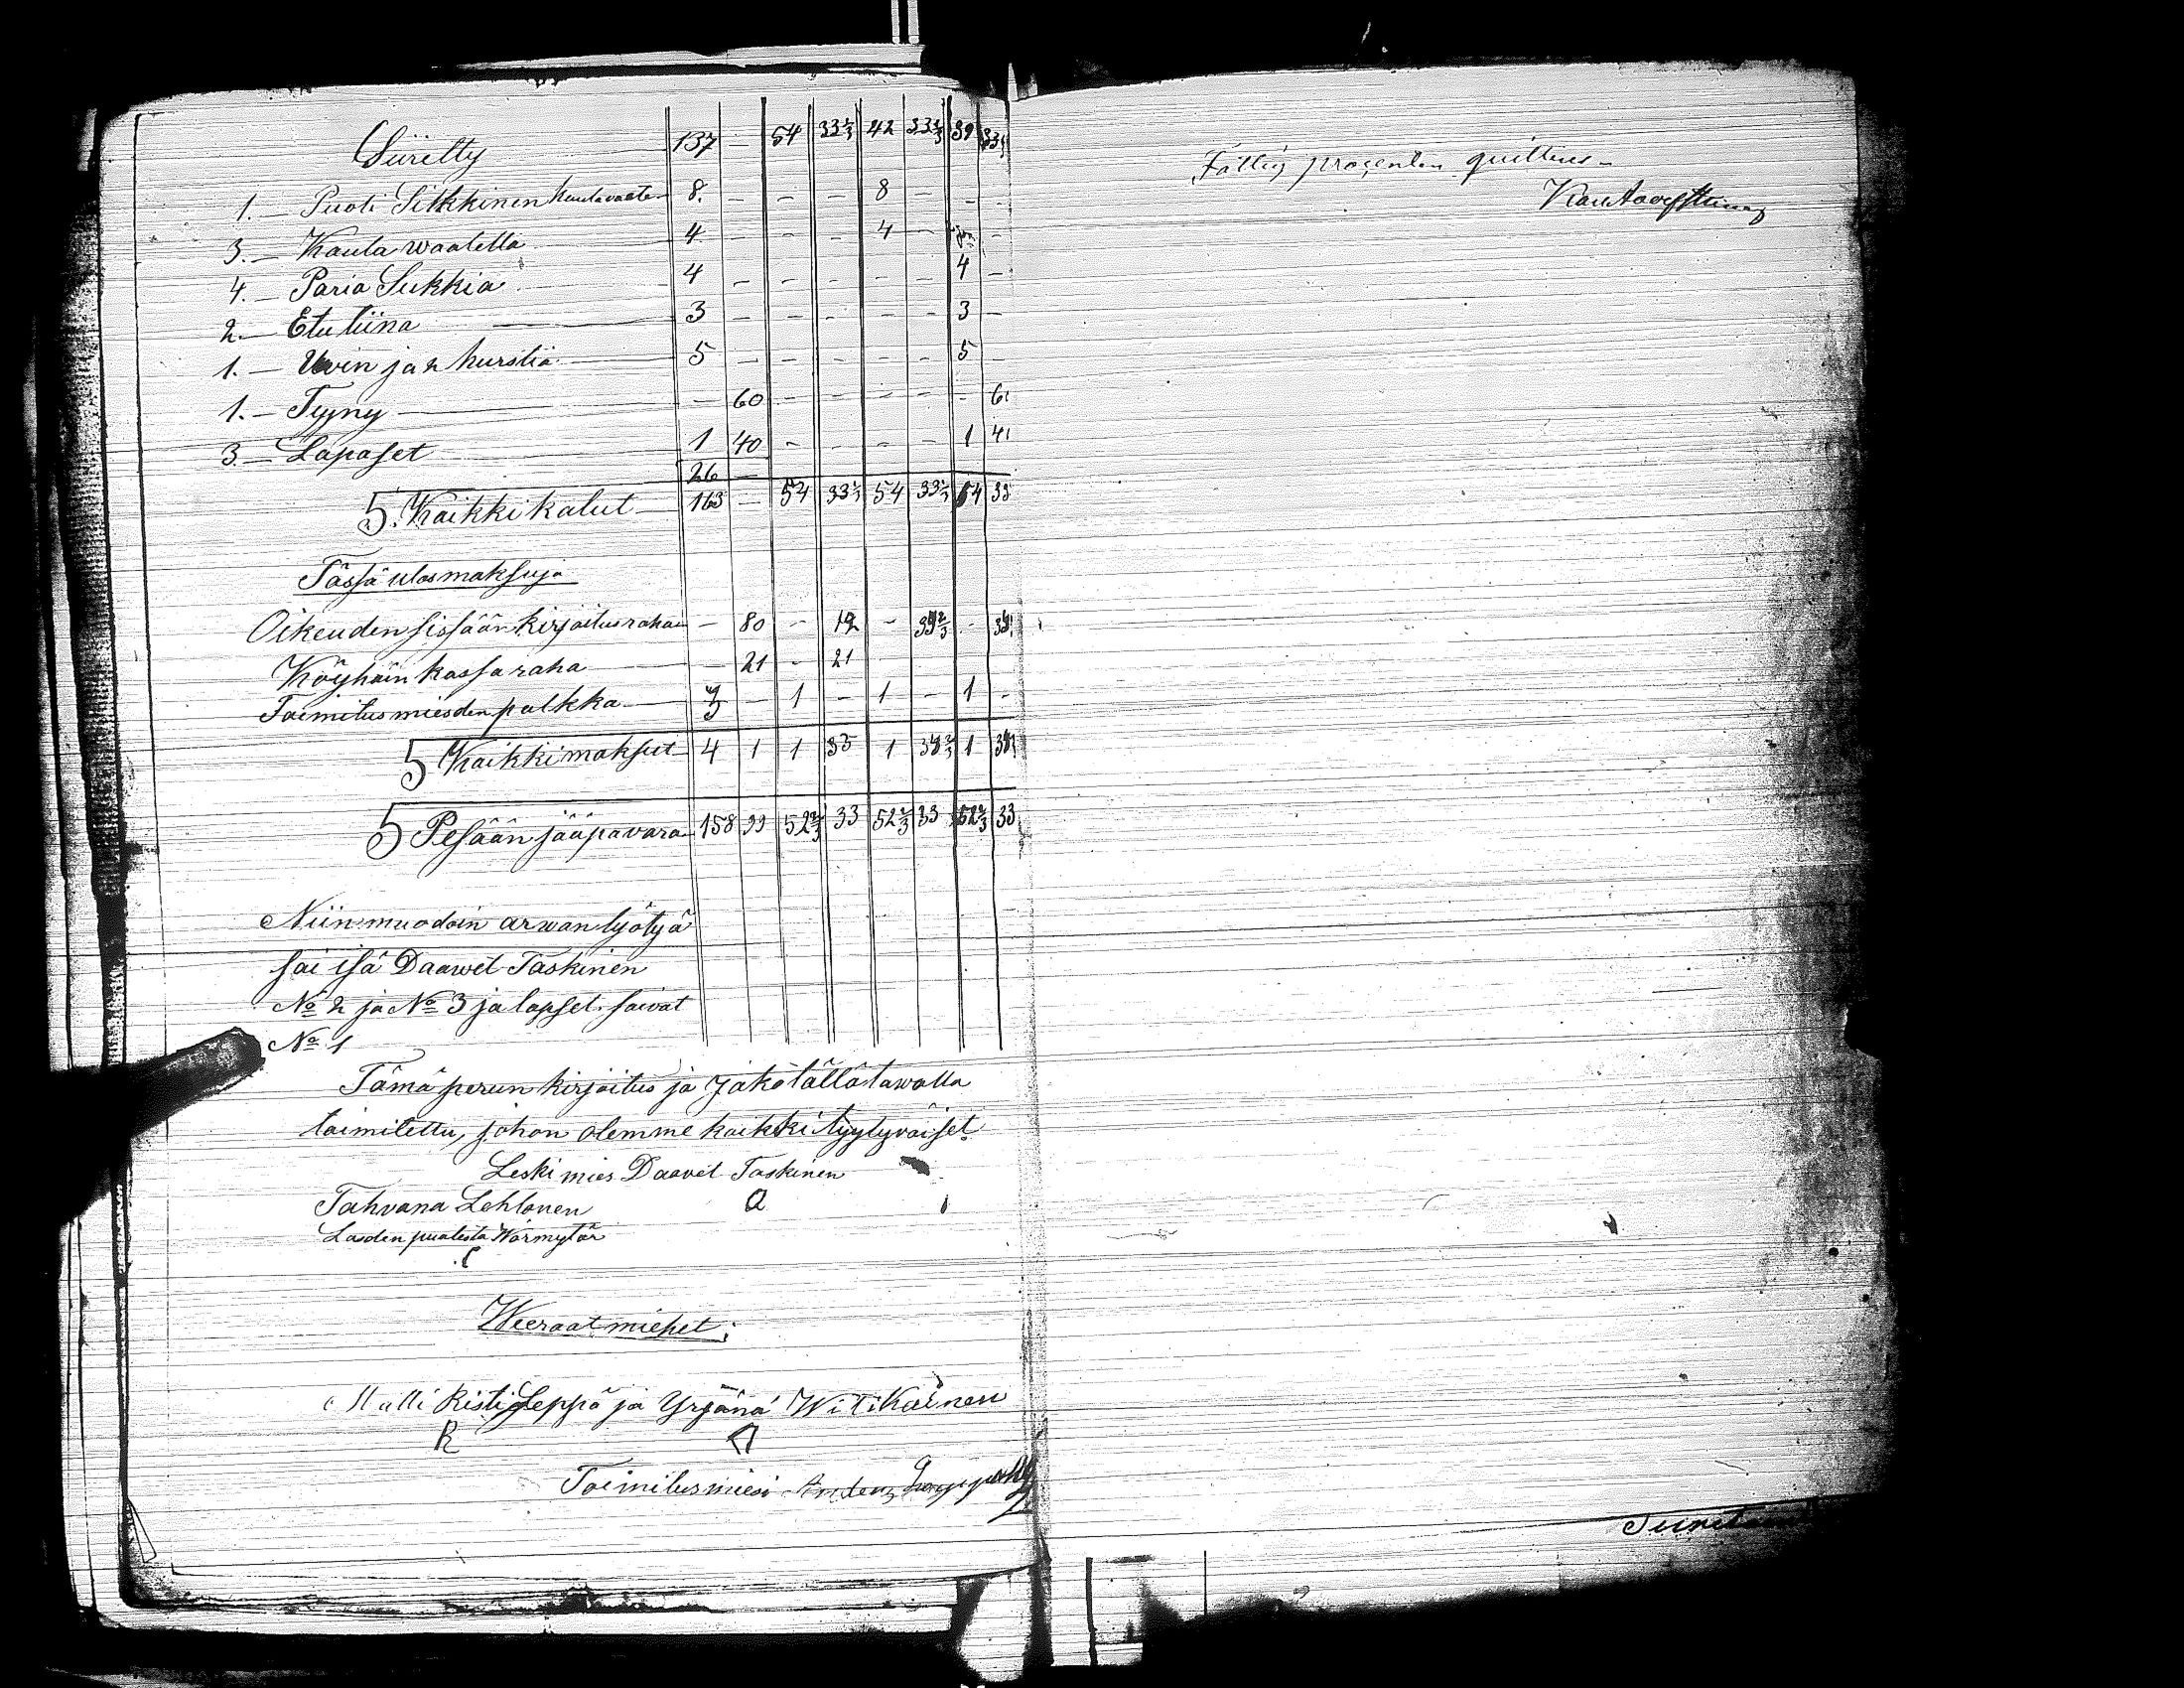 Siiretty 137 — 54 33⅓ 42 33⅓ 39 33⅓
1. — Puoli Silkkinen kaulavaate — 8. — — — 8 — — —
3. — Kaula waatetta 4 — — — 4 — —
4. — Paria Sukkia 4 — — — — — 4 —
2. — Etuliina 3 — — — — — 3 —
1. — Uvin ja 2 hurstia 5 — — — — — 5 —
1. — Tyyny — — 60 — — — — —
3. — Lapaset 1 40 — — — — 1
26 —
S. Kaikki kalut — 163 — 54 33⅓ 54 33⅓ 54 33
Tässä ulosmaksuja
Oikeuden sissään kirjoitus rahaa — 80 — 12 —
Köyhäin kassa raha — — 21 — 21
Toimitus miesden palkka — 3 — 1 — 1 — 1 —
S Kaikki maksut 4 1 1 33 1 1
S Pesään jääpavara 158 99 52⅔ 33 52⅔ 33 52⅔ 33
Niinmuodoin arwan lyötyä
sai isä Daawet Taskinen
No 2 ja No 3 ja lapset saivat
No 1
Tämä perun kirjoitus ja jako tällä tawalla
toimitettu, johon olemme kaikki tyytyväiset.
Leski mies Daavet Taskinen
Tahvana Lehtonen
Lasden puolesta Wärmytär
Wieraat miehet;
Matti Ristiseppä ja Yrjänä Witikainen
R
Toimitus miesi
Fattig procenten quitteras